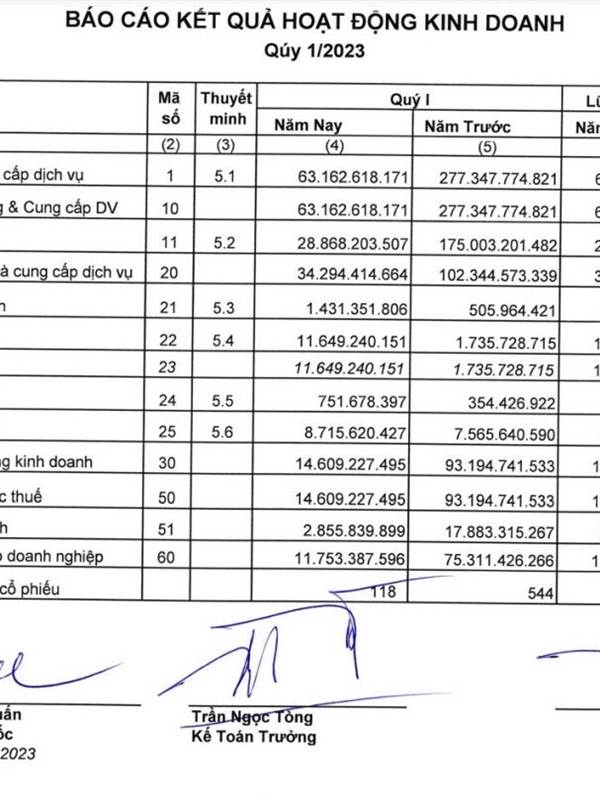 BÁO CÁO KẾT QUẢ HOẠT ĐỘNG KINH DOANH
Qúy 1/2023
Mã số Thuyết minh Quý I
Năm Nay Năm Trước
(2) (3) (4) (5)
cấp dịch vụ 1 5.1 63.162.618.171 277.347.774.821 6
& Cung cấp DV 10 63.162.618.171 277.347.774.821 6
11 5.2 28.868.203.507 175.003.201.482 2
à cung cấp dịch vụ 20 34.294.414.664 102.344.573.339 3
h 21 5.3 1.431.351.806 505.964.421
22 5.4 11.649.240.151 1.735.728.715 1
23 11.649.240.151 1.735.728.715 1
24 5.5 751.678.397 354.426.922
25 5.6 8.715.620.427 7.565.640.590
ng kinh doanh 30 14.609.227.495 93.194.741.533 1
c thuế 50 14.609.227.495 93.194.741.533 1
h 51 2.855.839.899 17.883.315.267
doanh nghiệp 60 11.753.387.596 75.311.426.266 1
cổ phiếu 118 544
uấn Trần Ngọc Tòng
ốc Kế Toán Trưởng
2023